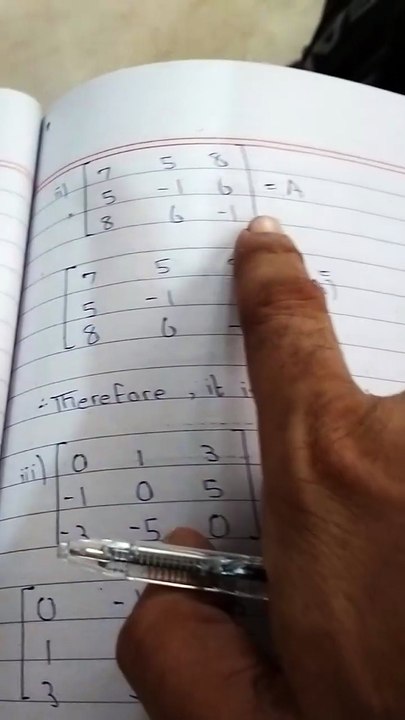 ii) [ 7 5 8 ] = A
5 -1 6
8 6 -1
[ 7 5
5 -1
8 6
∴ Therefore, it
iii) [ 0 1 3
-1 0 5
-3 -5 0 ]
[ 0
1
3